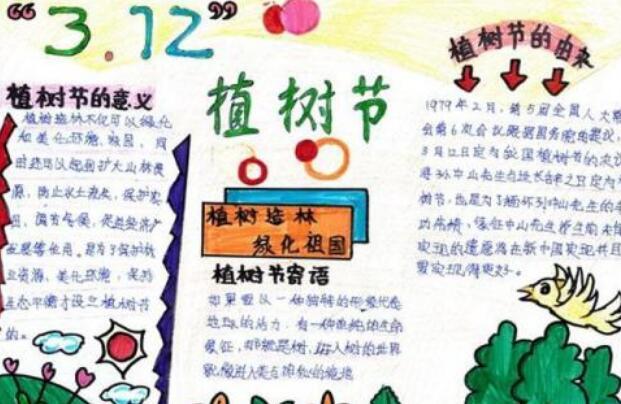 “3.12”
植树节的意义
植树造林不仅可以绿化
和美化环境,家园,同
时还可以起到扩大山林资
源、防止水土流失、保护农
田、调节气候、促进经济产
业发展等作用。是为了保护林
业资源、美化环境、保持
生态平衡才设立植树节
的。
植树节
植树造林
绿化祖国
植树节寄语
如果要以一种独特的形象代表
地球的活力,有一种单纯的生命
象征,那就是树,
植树节的由来
1979年2月,第5届全国人大常
会第6次会议根据国务院的提议,
3月12日定为我国植树节的决议
将孙中山先生逝世
树节,也是为了缅怀孙中山先生的
功绩,象征中山先生
实现的遗愿将在新中国实现并且
要实现得更好。